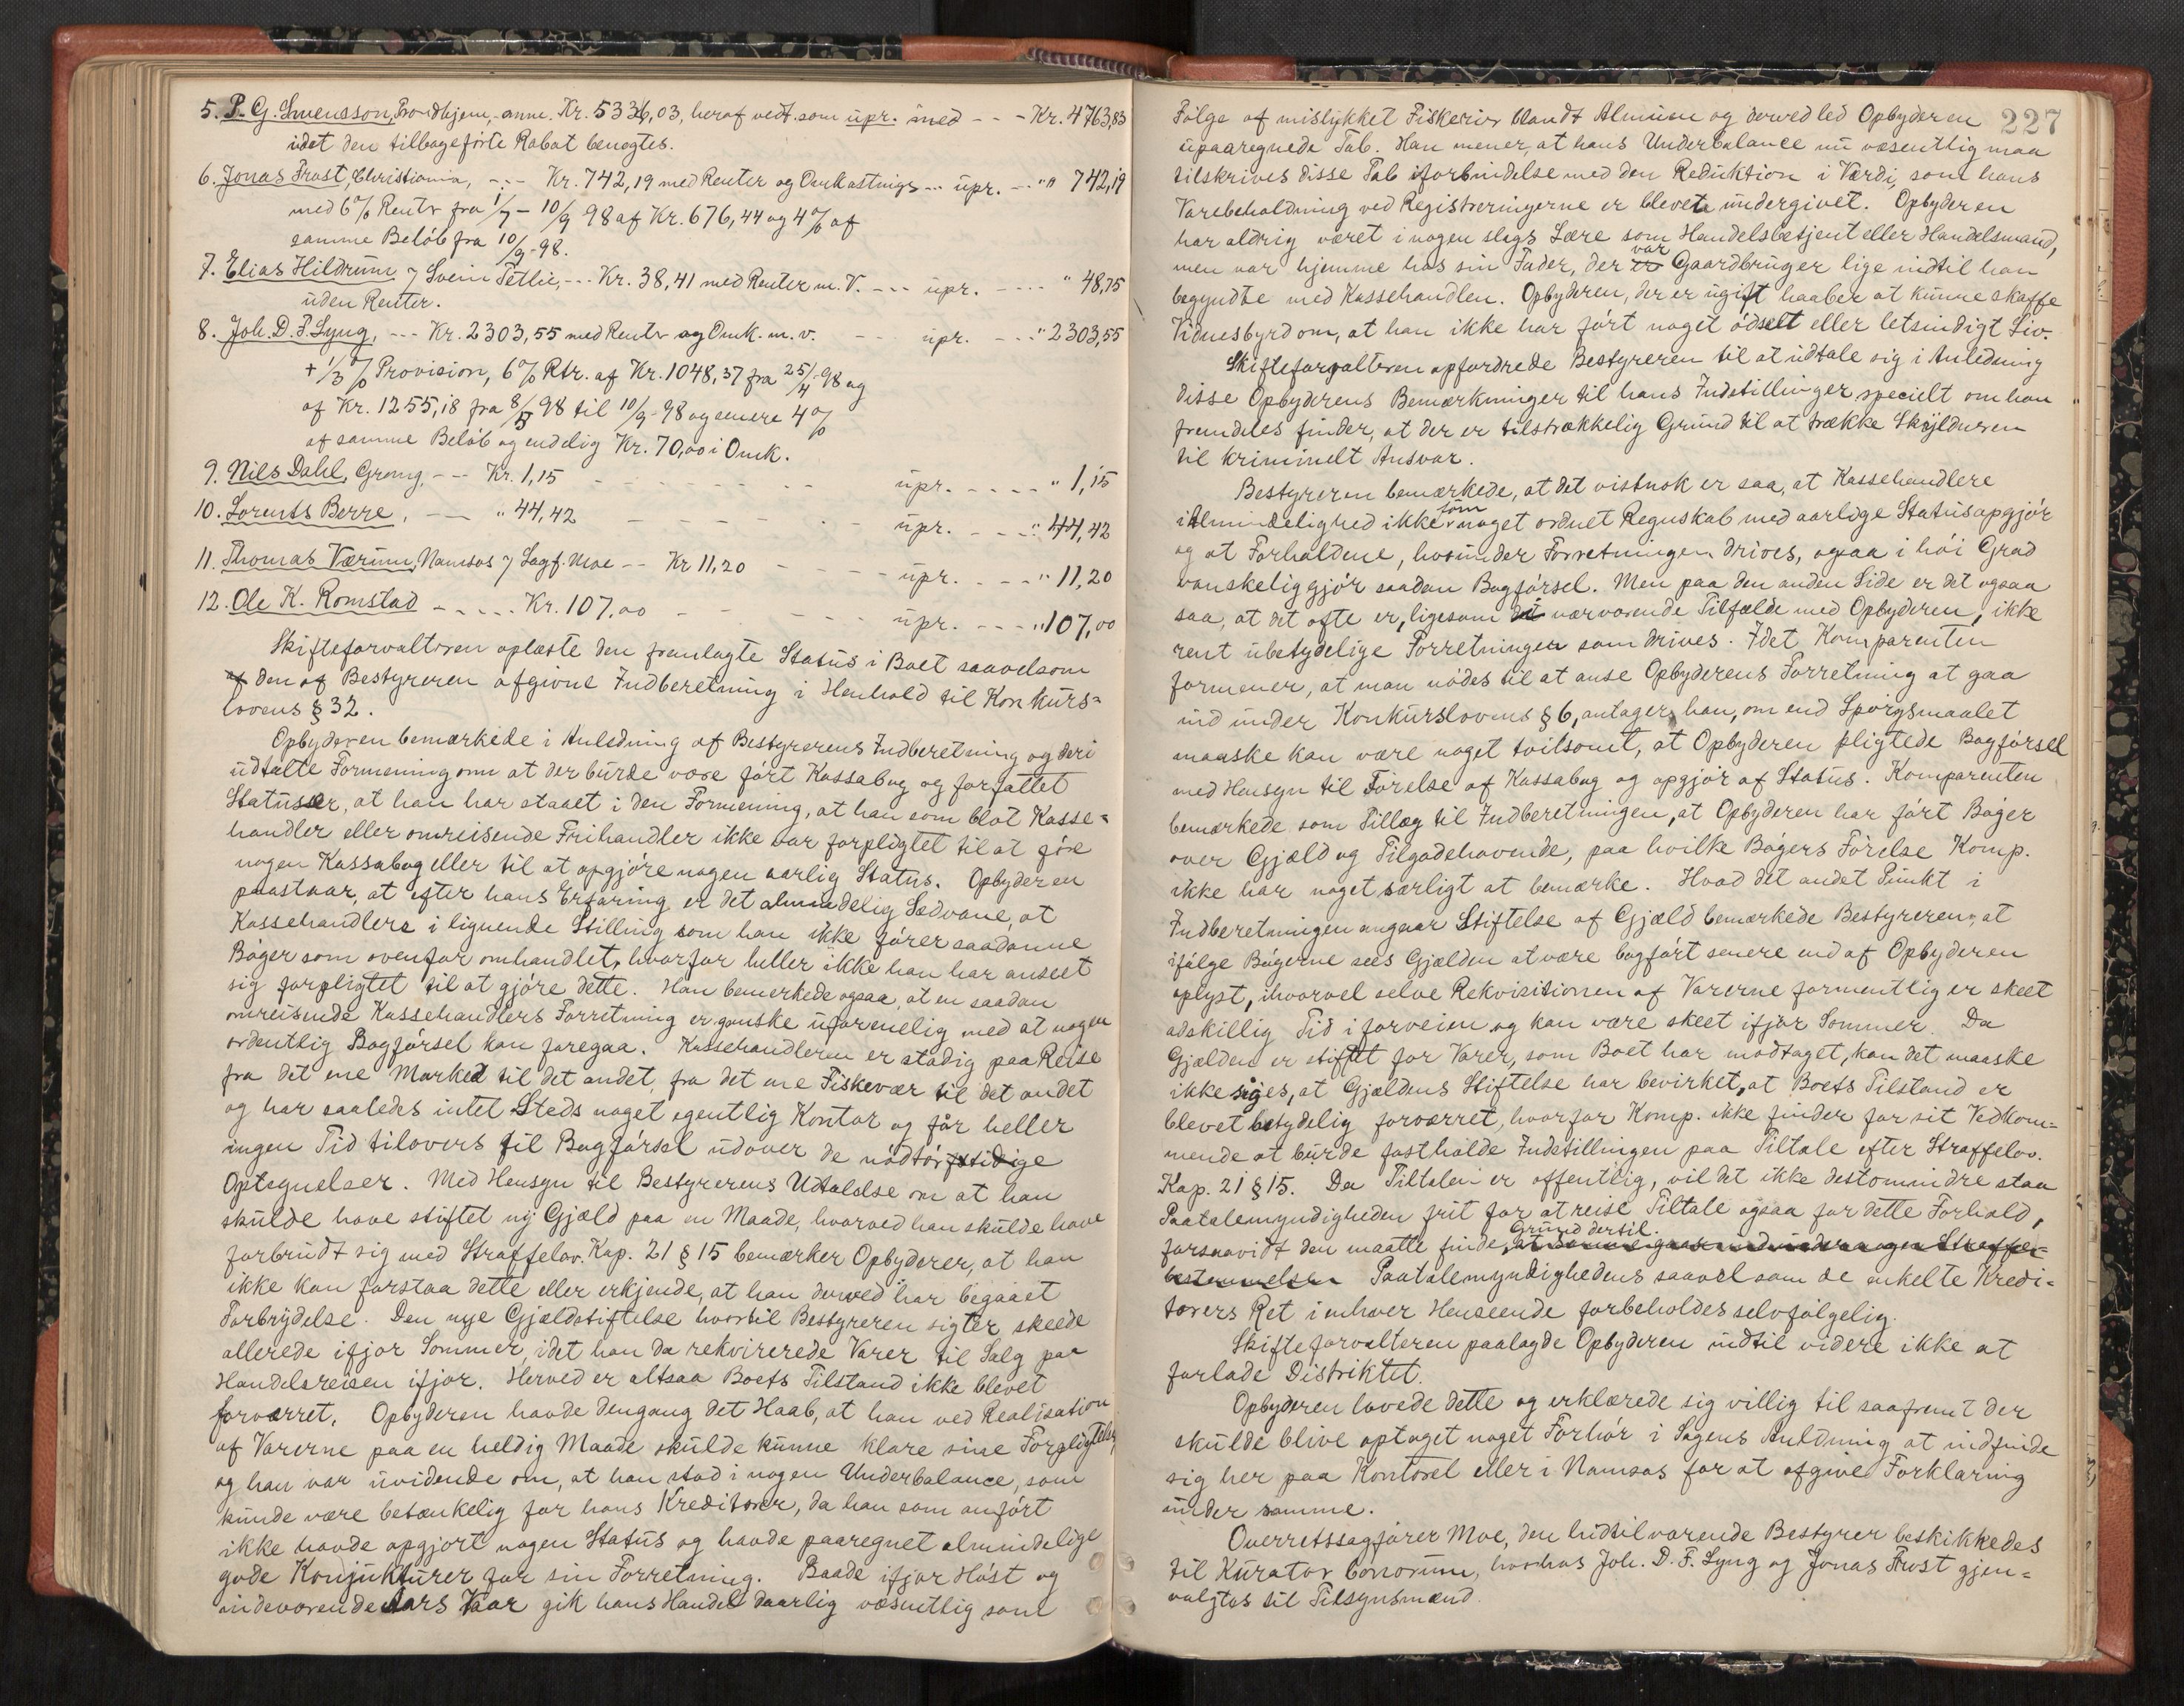 5. P. G. Svensson, Trondhjem, - anm. Kr. 5336,03, heraf vedt. som upr. med - - - Kr. 4763,83
idet den tilbageførte Rabat benegtes.
6. Jonas Frost, Christiania, - - - Kr. 742,19 med Renter og Omkostnings - - upr. - - " 742,19
med 6% Renter fra 1/7 - 10/9 98 af Kr. 676,44 og 4% af
samme Beløb fra 10/9-98.
7. Elias Hildrum, 7 Svein Tetlie, - - - Kr. 38,41 med Renter m. V. - - - upr. - - - - " 48,75
uden Renter.
8. Joh. D. F. Lyng, - - - Kr. 2303,55 med Renter og Omk. m. v. - - upr. - - - " 2303,55
+ 1/3 % Provision, 6% Rtr. af Kr. 1048,37 fra 25/4-98 og
af Kr. 1255,18 fra 8/5 98 til 10/9-98 og senere 4%
af samme Beløb og endelig Kr. 70,00 i Omk.
9. Nils Dahl, Grong, - - Kr. 1,15 - - - - - - - - upr. - - - - " 1,15
10. Lorents Berre, - - " 44,42 - - - - - - - upr. - - - " 44,42
11. Thomas Værum, Namsos 7 Sagf. Moe - - Kr 11,20 - - - - - upr. - - - - " 11,20
12. Ole K. Romstad - - - - - Kr. 107,00 - - - - - - upr. - - - " 107,00
Skifteforvalteren oplæste den fremlagte Status i Boet saavelsom
af den af Bestyreren afgivne Indberetning i Henhold til Konkurs-
lovens § 32.
Opbyderen bemærkede i Anledning af Bestyrerens Indberetning og deri
udtalte Formening om at der burde være ført Kassabog og forfattet
Statusser, at han har staaet i den Formening, at han som blot Kasse-
handler eller omreisende Frihandler ikke var forpligtet til at føre
nogen Kassabog eller til at opgjøre nogen aarlig Status. Opbyderen
paastaar, at efter hans Erfaring er det almindelig Sædvane, at
Kassehandlere i lignende Stilling som han ikke fører saadanne
Bøger som ovenfor omhandlet, hvorfor heller ikke han har anseet
sig forpligtet til at gjøre dette. Han bemerkede ogsaa, at en saadan
omreisende Kassehandlers Forretning er ganske uforenelig med at nogen
ordentlig Bogførsel kan foregaa. Kassehandleren er stadig paa Reise
fra det ene Marked til det andet, fra det ene Fiskevær til det andet
og har saaledes intet Steds noget egentlig Kontor og får heller
ingen Tid tilovers til Bogførsel udover de nødtørftidige
Optegnelser. Med Hensyn til Bestyrerens Udtalelse om at han
skulde have stiftet ny Gjæld paa en Maade, hvorved han skulde have
forbrudt sig med Straffelov. Kap. 21 § 15 bemærker Opbyderer, at han
ikke kan forstaa dette eller erkjende, at han derved har begaaet
Forbrydelse. Den nye Gjældstiftelse hvortil Bestyreren sigter skeede
allerede ifjor Sommer, idet han da rekvirerede Varer til Salg paa
Handelsreisen ifjor. Herved er altsaa Boets Tilstand ikke blevet
forværret. Opbyderen havde dengang det Haab, at han ved Realisation
af Varerne paa en heldig Maade skulde kunne klare sine Forpligtelser,
og han var uvidende om, at han stod i nogen Underbalance, som
kunde være betænkelig for hans Kreditorer, da han som anført
ikke havde opgjort nogen Status og havde paaregnet almindelige
gode Konjunkturer for sin Forretning. Baade ifjor Høst og
indeværende Aars Vaar gik hans Handel daarlig væsentlig som
227
Følge af mislykket Fiskerier blandt Almuen og derved led Opbyderen
upaaregnede Tab. Han mener, at hans Underbalance nu væsentlig maa
tilskrives disse Tab iforbindelse med den Reduktion i Værdi, som hans
Varebeholdning ved Registreringerne er blevet undergivet. Opbyderen
har aldrig været i nogen slags Lære som Handelsbetjent eller Handelsmand,
men var hjemme hos sin Fader, der er var Gaardbruger lige indtil han
begyndte med Kassehandlen. Opbyderen, der er ugift haaber at kunne skaffe
Vidnesbyrd om, at han ikke har ført noget ødselt eller letsindigt Liv.
Skifteforvalteren opfordrede Bestyreren til at udtale sig i Anledning
disse Opbyderens Bemærkninger til hans Indstillinger specielt om han
fremdeles finder, at der er tilstrækkelig Grund til at trække Skyldneren
til kriminelt Ansvar.
Bestyreren bemærkede, at det vistnok er saa, at Kassehandlere
i Almindelighed ikke fører noget ordnet Regnskab med aarlige Statusopgjør
og at Forholdene, hvorunder Forretningen drives, ogsaa i høi Grad
vanskeliggjør saadan Bogførsel. Men paa den anden Side er det ogsaa
saa, at det ofte er, ligesom det nærværende Tilfælde med Opbyderen, ikke
rent ubetydelige Forretninger som drives. Idet Komparenten
formener, at man nødes til at anse Opbyderens Forretning at gaa
ind under Konkurslovens § 6, antager han, om end Spørgsmaalet
maaske kan være noget tvilsomt, at Opbyderen pligtede Bogførsel
med Hensyn til Førelse af Kassabog og opgjør af Status. Komparenten
bemærkede som Tillæg til Indberetningen, at Opbyderen har ført Bøger
over Gjæld og Tilgodehavende, paa hvilke Bøgers Førelse Komp.
ikke har noget særligt at bemærke. Hvad det andet Punkt i
Indberetningen angaar Stiftelse af Gjæld bemærkede Bestyreren, at
ifølge Bøgerne sees Gjælden at være bogført senere end af Opbyderen
oplyst, ihvorvel selve Rekvisitionen af Varerne formentlig er skeet
adskillig Tid i forveien og kan være skeet ifjor Sommer. Da
Gjælden er stiftet for Varer, som Boet har modtaget, kan det maaske
ikke siges, at Gjældens Stiftelse har bevirket, at Boets Tilstand er
blevet betydelig forværret, hvorfor Komp. ikke finder for sit Vedkom-
mende at burde fastholde Indstillingen paa Tiltale efter Straffelov.
Kap. 21 § 15. Da Tiltalen er offentlig, vil det ikke destomindre staa
Paatalemyndigheden frit for at reise Tiltale ogsaa for dette Forhold,
forsaavidt den maatte finde Grund dertil.
Paatalemyndighedens saavel som de enkelte Kredi-
torers Ret i enhver Henseende forbeholdes selvfølgelig.
Skifteforvalteren paalagde Opbyderen indtil videre ikke at
forlade Distriktet.
Opbyderen lovede dette og erklærede sig villig til saafremt der
skulde blive optaget noget Forhør i Sagens Anledning at indfinde
sig her paa Kontoret eller i Namsos for at afgive Forklaring
under samme.
Overretssagfører Moe, den hidtilværende Bestyrer beskikkedes
til Kurator bonorum, hvorhos Joh. D. F. Lyng og Jonas Frost gjen-
valgtes til Tilsynsmænd.